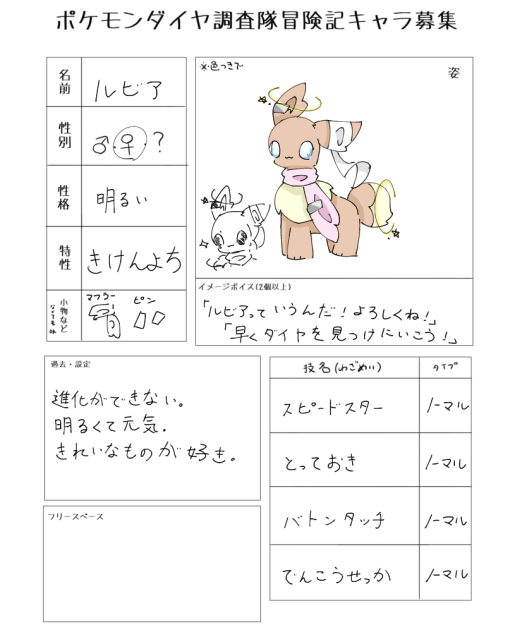 ポケモンダイヤ調査隊冒険記キャラ募集
名前
ルビア
性別
♂・♀・?
性格
明るい
特性
きけんよち
小物など
なくてもOK
マフラー
ピン
※色つきで
姿
イメージボイス(2個以上)
「ルビアっていうんだ!よろしくね!」
「早くダイヤを見つけにいこう!」
過去・設定
進化ができない。
明るくて元気。
きれいなものが好き。
フリースペース
技名(わざめい)
タイプ
スピードスター
ノーマル
とっておき
ノーマル
バトンタッチ
ノーマル
でんこうせっか
ノーマル